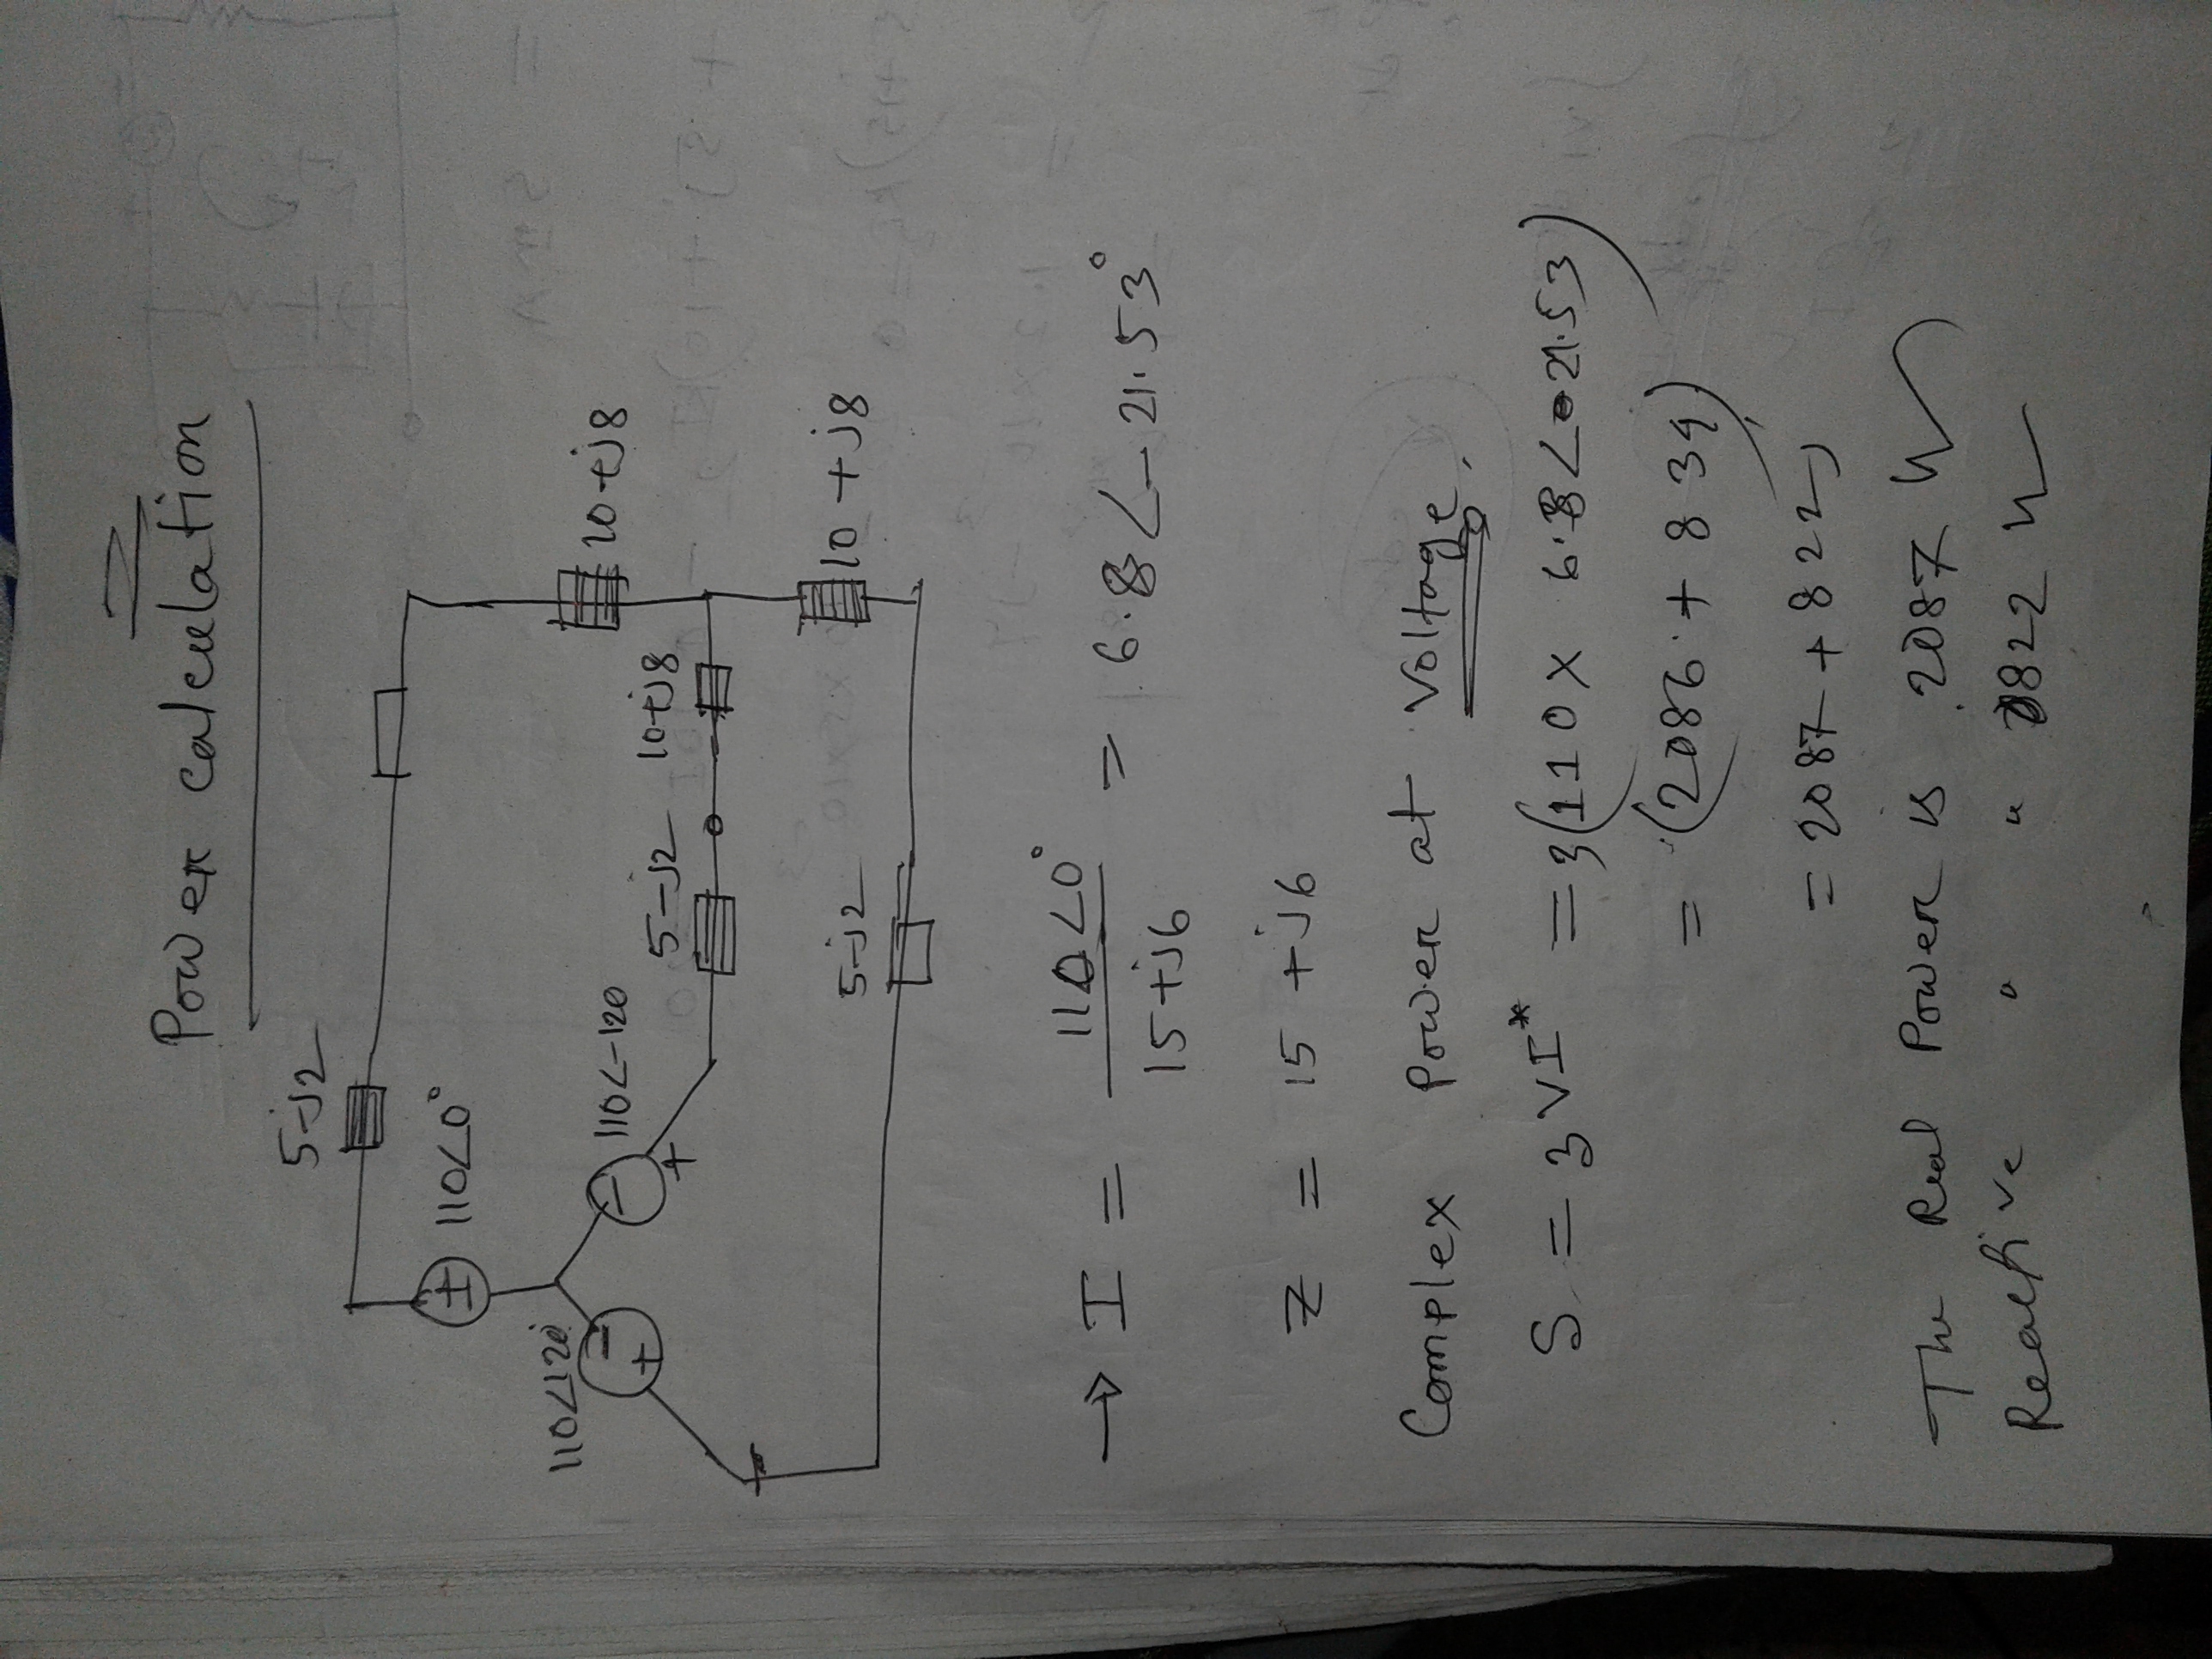 Power calculation
5-j2
110∠0°
110∠120°
110∠-120
10+j8
5-j2
10+j8
10+j8
5-j2
→ I = 110∠0° / 15+j6 = 6.8∠-21.53°
Z = 15 +j6
Complex Power at Voltage,
S = 3VI* = 3(110 × 6.8∠21.53)
= (2086 + 834)
= 2087 + 822j
The Real Power is 2087 W
Reactive " " 822 W